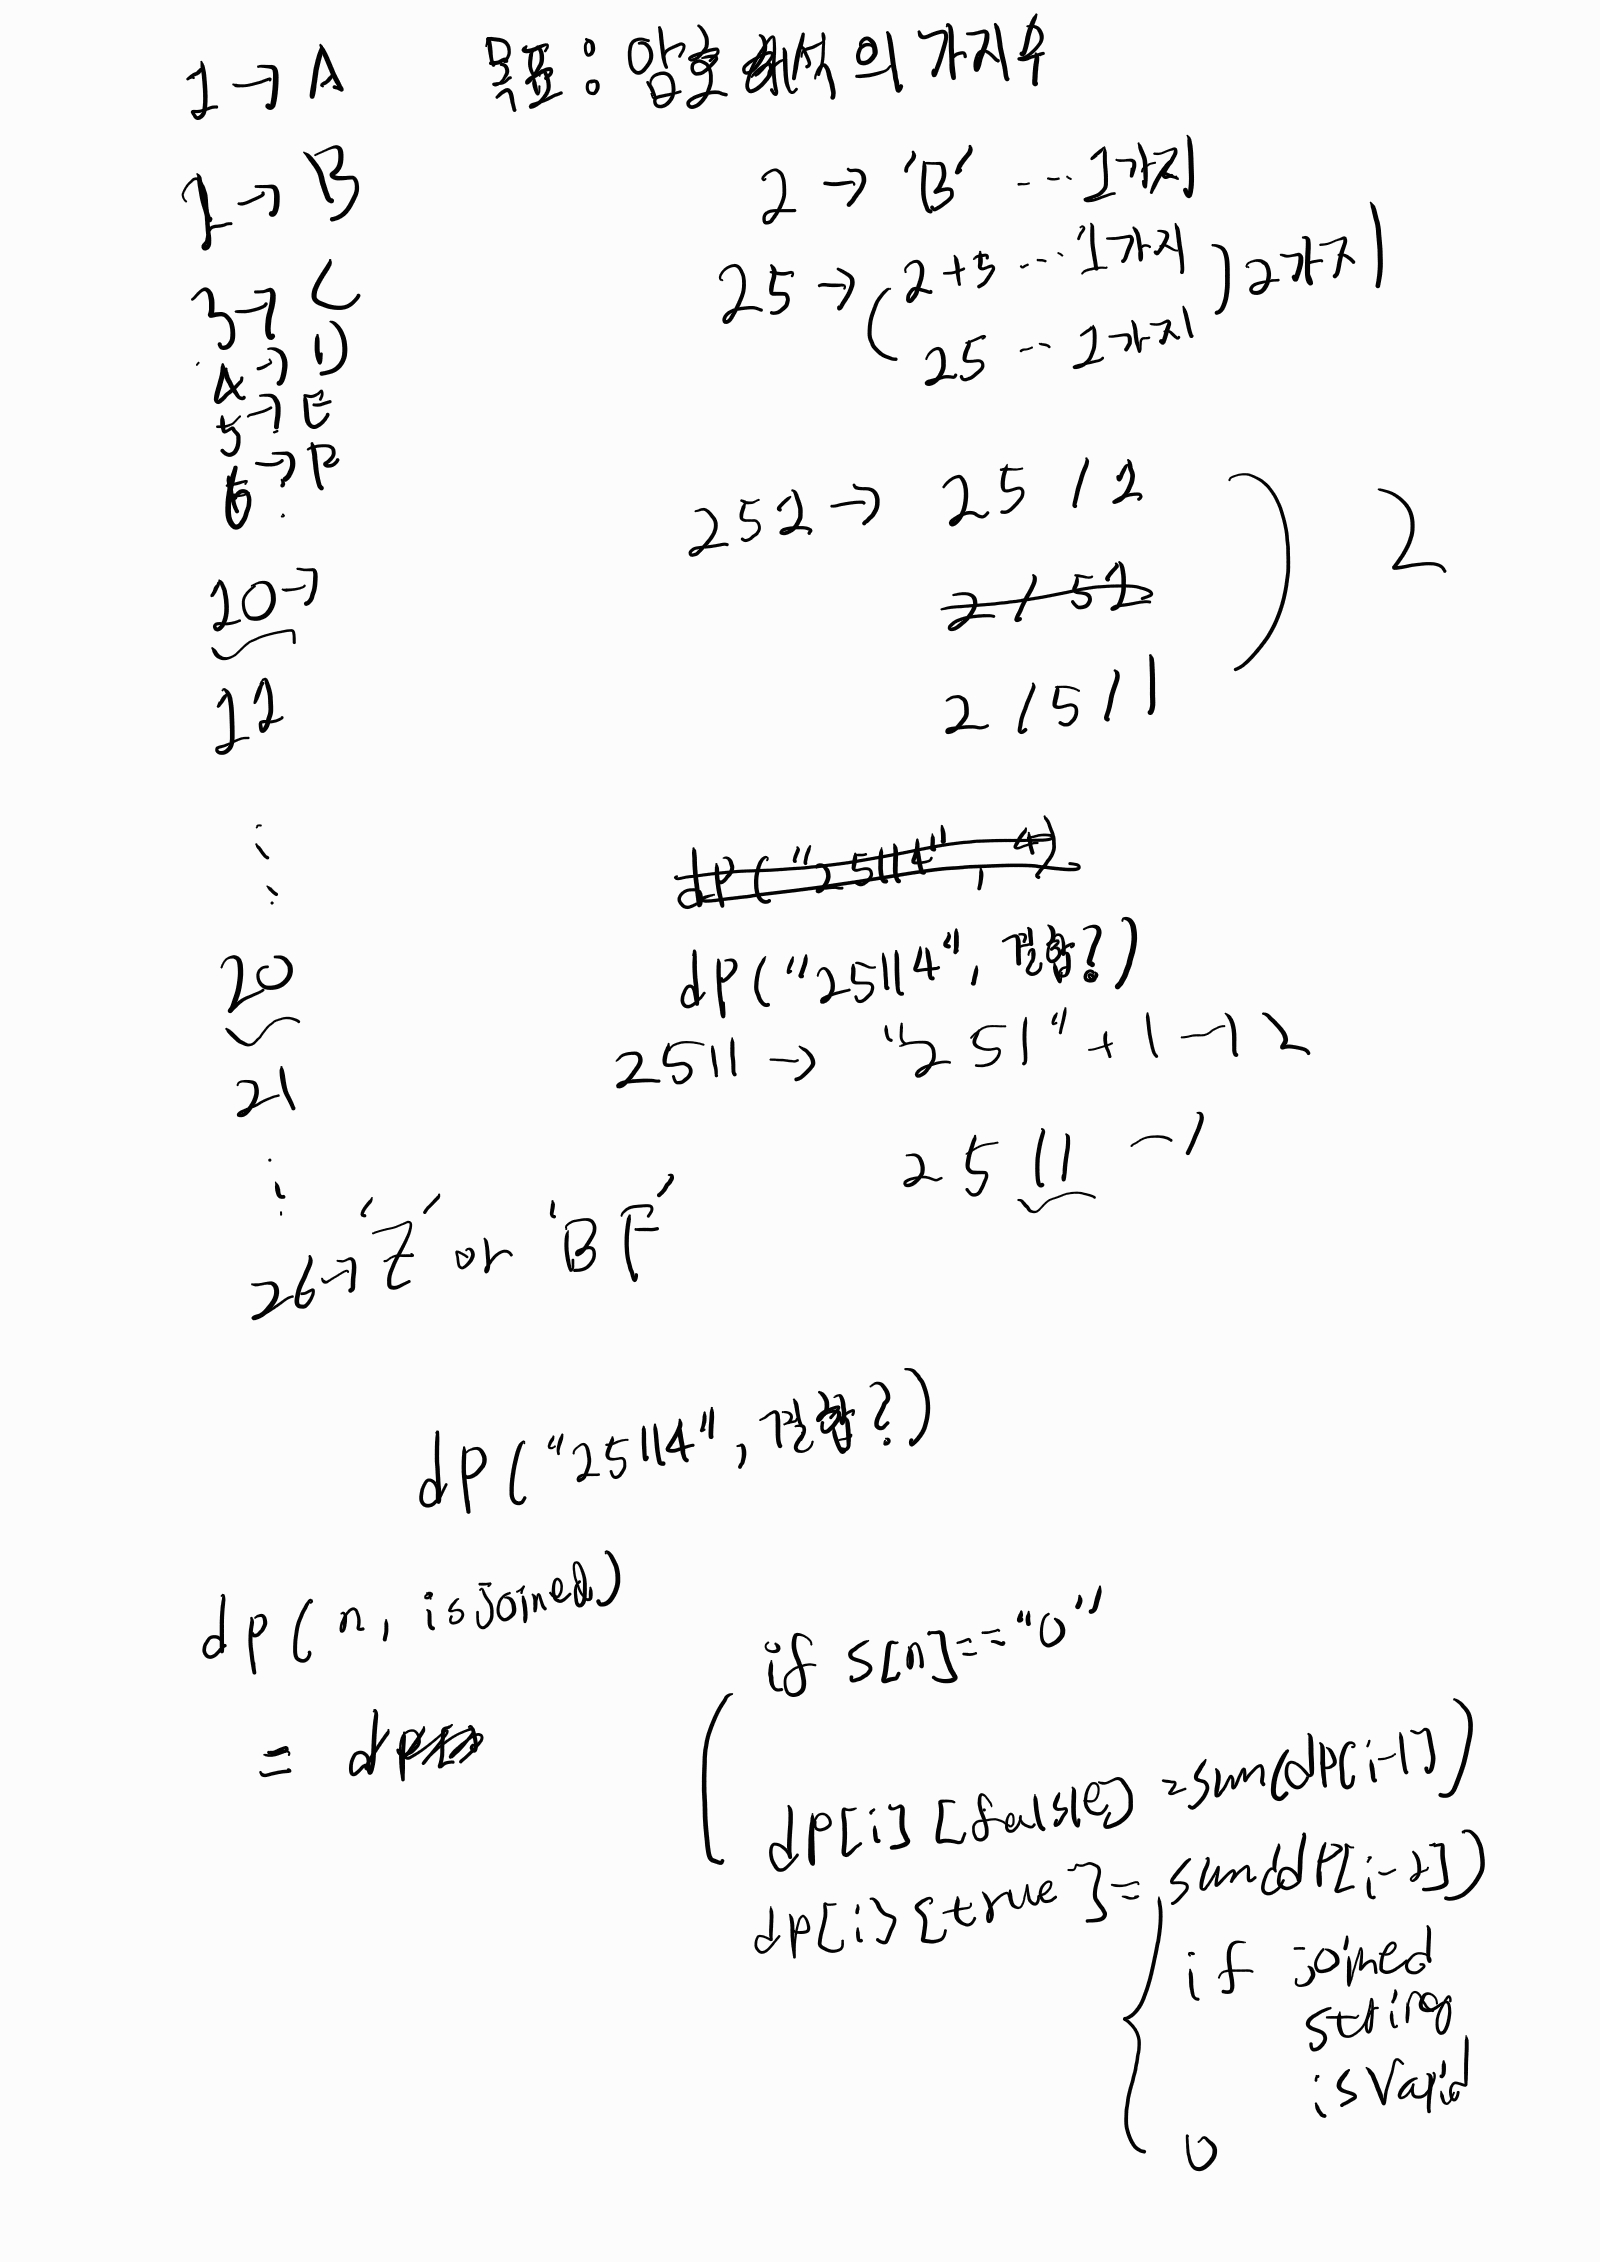 목표 : 암호 해석의 가지수
1 → A
2 → B
3 → C
4 → D
5 → E
6 → F
20 →
21
26 → 'Z' or 'BF'
2 → 'B' ... 1가지
25 → ( 2+5 ... 1가지
25 ... 1가지 ) 2가지
252 → 25 / 2
2 / 52
2 / 5 / 1
2
dp("25114", 4)
dp("25114", 결합?)
2511 → "251" + 1 → 2
2511 → 1
dp("25114", 결합?)
dp(n, isjoined)
= dp
if s[n]=="0"
dp[i][false] = sum(dp[i-1])
dp[i][true] = sum(dp[i-2])
if joined
string
isValid
0